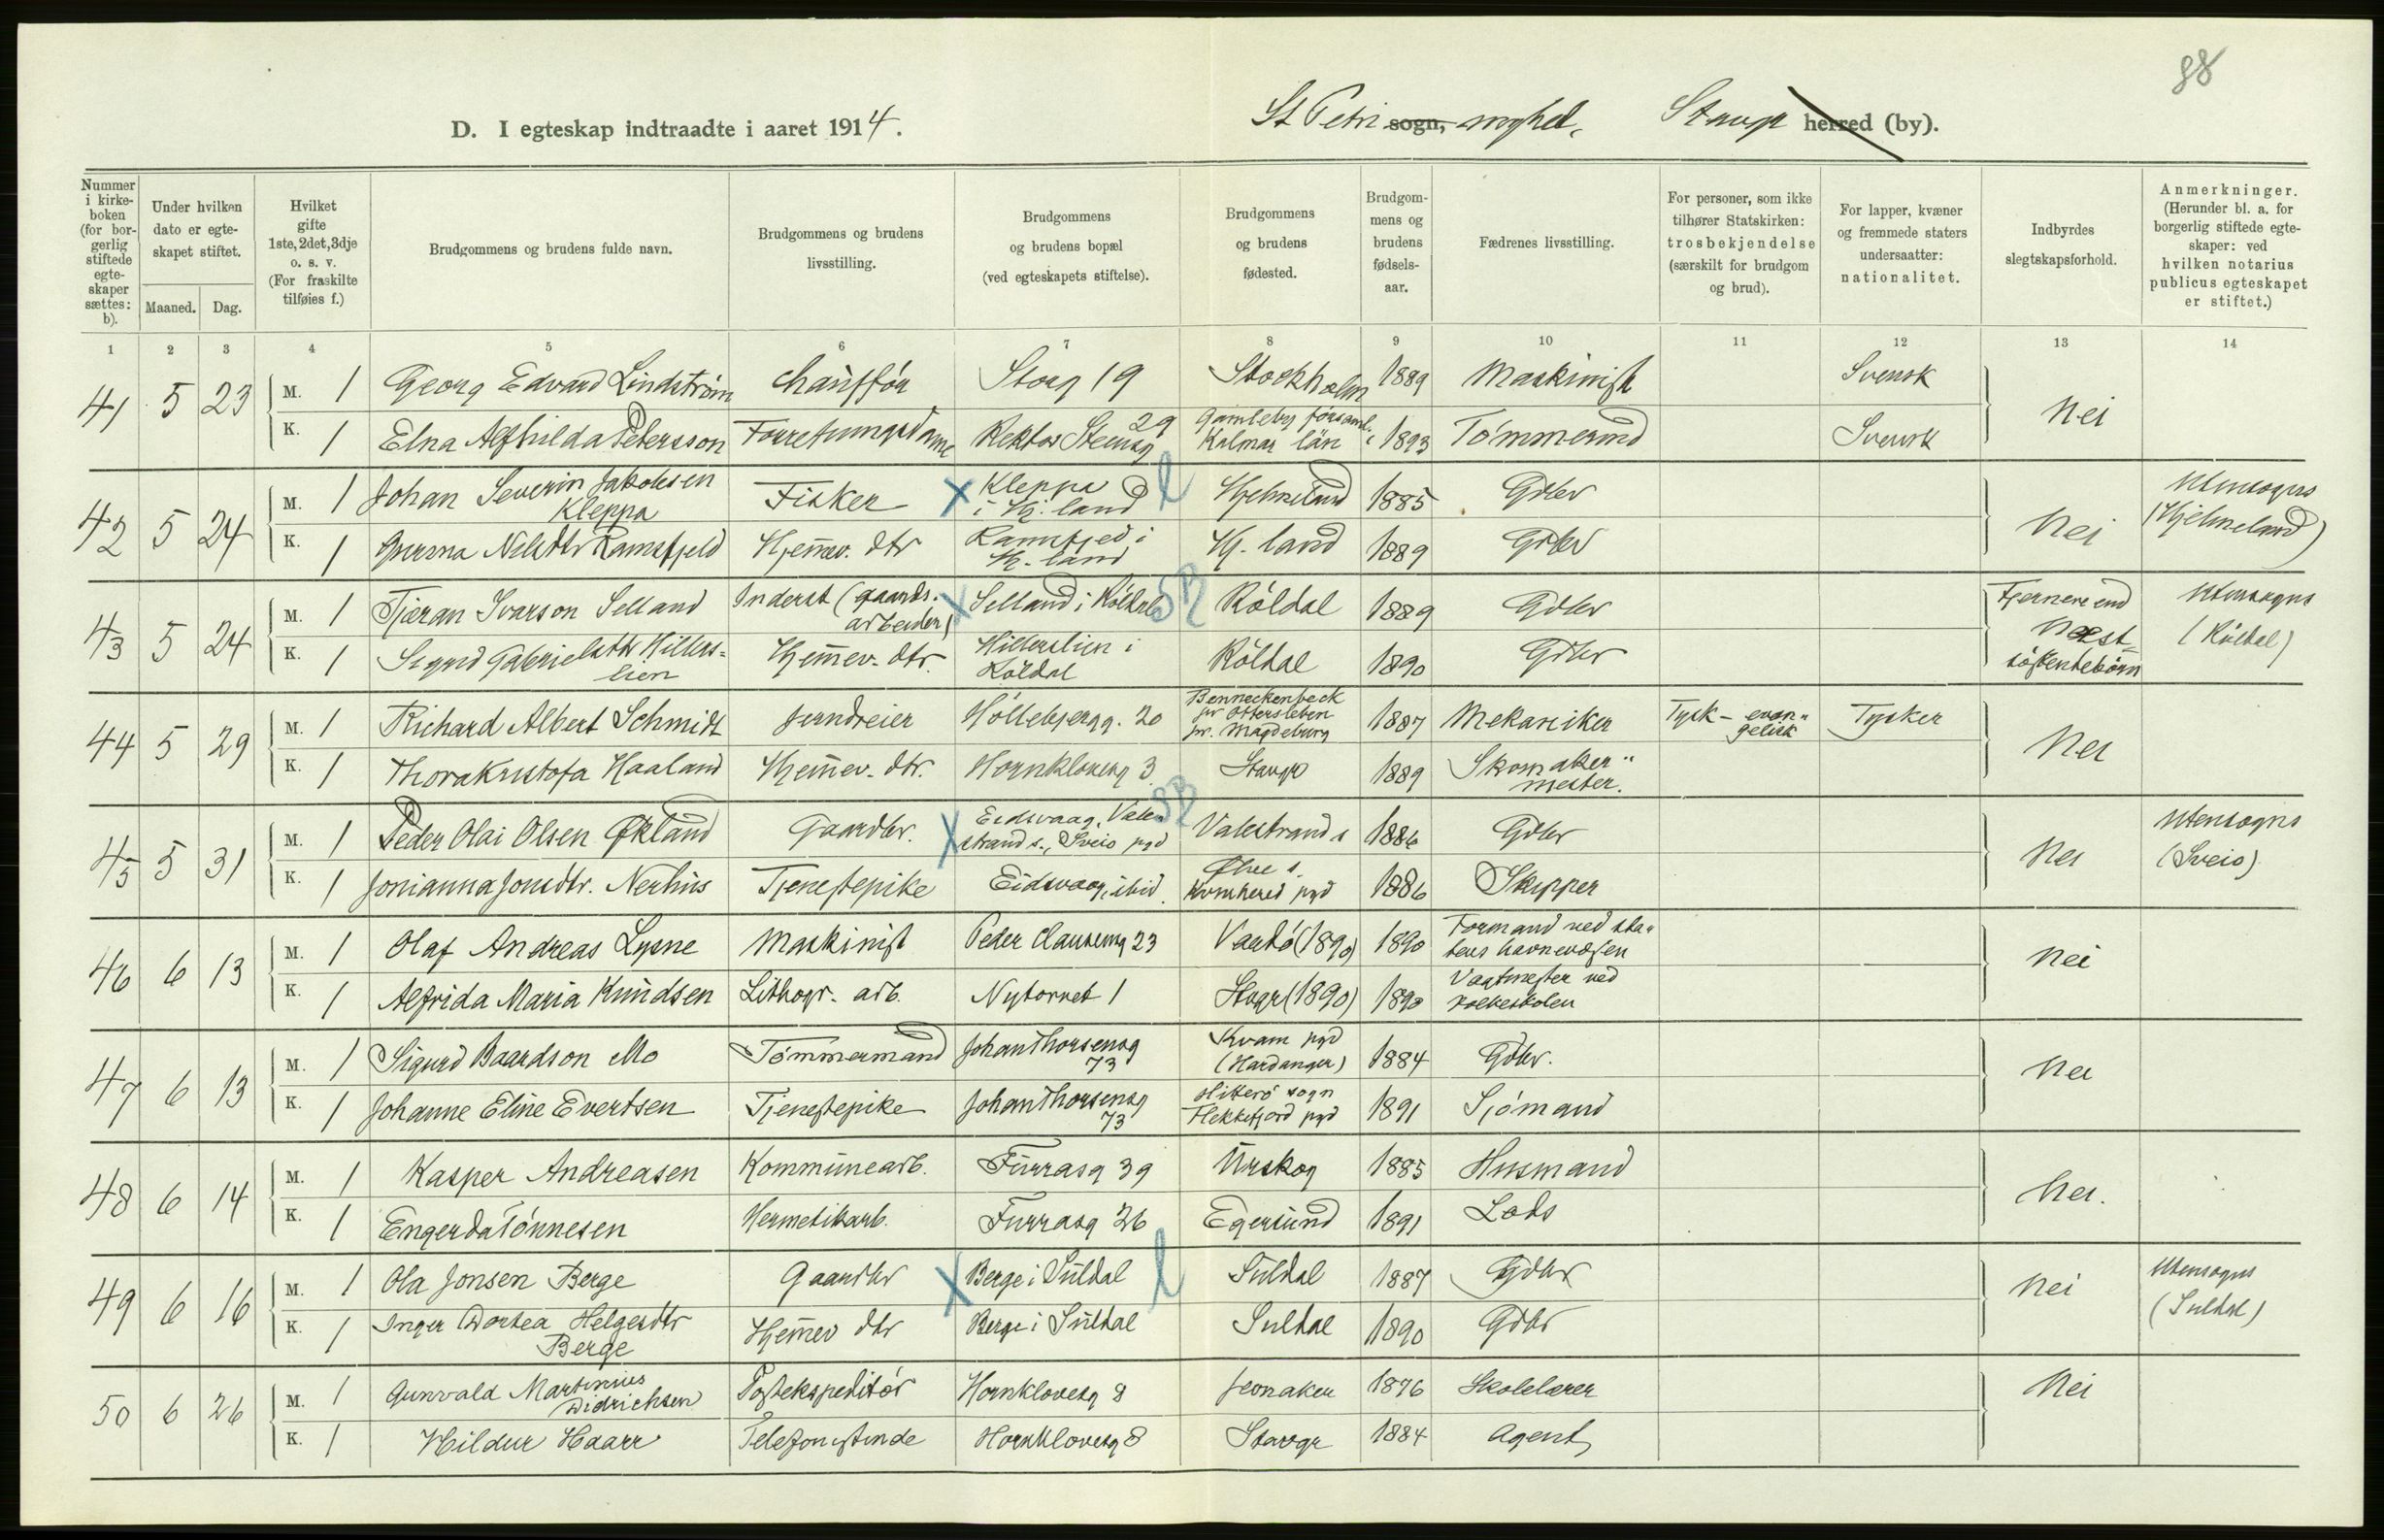 88
D. I egteskap indtraadte i aaret 1914.
St Petri sogn, Stavgr herred (by).
Nummer i kirkeboken (for borgerlig stiftede egteskaper sættes: b).
Under hvilken dato er egteskapet stiftet.
Maaned. Dag.
Hvilket gifte 1ste, 2det, 3dje o. s. v. (For fraskilte tilføies f.)
Brudgommens og brudens fulde navn.
Brudgommens og brudens livsstilling.
Brudgommens og brudens bopæl (ved egteskapets stiftelse).
Brudgommens og brudens fødested.
Brudgommens og brudens fødselsaar.
Fædrenes livsstilling.
For personer, som ikke tilhører Statskirken: trosbekjendelse (særskilt for brudgom og brud).
For lapper, kvæner og fremmede staters undersaatter: nationalitet.
Indbyrdes slegtskapsforhold.
Anmerkninger. (Herunder bl. a. for borgerlig stiftede egteskaper: ved hvilken notarius publicus egteskapet er stiftet.)
1 2 3 4 5 6 7 8 9 10 11 12 13 14
41 5 23 M. 1 Georg Edvard Lindström Chaufför Storg 19 Stockholm 1889 Maskinist Svensk Nei
K. 1 Elna Alfhilda Petersson Forretningsdame Rektor Steensg 29 Gamleby församl. i Kalmar län 1893 Tömmermd Svensk
42 5 24 M. 1 Johan Severin Jakobsen Kleppa Fisker X Kleppa i Hj. land l Hjelmeland 1885 Gdbr Nei Utensogns (Hjelmeland)
K. 1 Gurina Nilsdtr Ramsfjeld Hjemmev. dtr Ramsfjed i Hj. land Hj. land 1889 Gdbr
43 5 24 M. 1 Tjeran Ivarson Selland Inderst (gaardsarbeider) X Selland i Röldal SB Röldal 1889 Gdbr Fjernere end næstsöskendebörn Utensogns (Röldal)
K. 1 Sigrid Gabrielsdtr Hillerslien Hjemmev. dtr. Hillerslien i Röldal Röldal 1890 Gdbr
44 5 29 M. 1 Richard Albert Schmidt Jerndreier Höllebjergg. 20 Benneckenbeck pr Ottersleben pr. Magdeburg 1887 Mekaniker Tysk-evangelisk Tysker Nei
K. 1 Thora Kristofa Haaland Hjemmev. dtr. Hornklovesg 3 Stavgr 1889 Skomakermester.
45 5 31 M. 1 Peder Olai Olsen Økland Gaardbr. X Eidsvaag, Valestrand s., Sveio pgd SB Valestrand s 1886 Gdbr Nei Utensogns (Sveio)
K. 1 Jonianna Jonsdtr. Nerhus Tjenestepike Eidsvaag, ibid. Ølve s. Kvinherred pgd 1886 Skipper
46 6 13 M. 1 Olaf Andreas Lysne Maskinist Peder Clausensg 23 Vardö (1890) 1890 Formand ved statens havnevæsen Nei
K. 1 Alfrida Maria Knudsen Lithogr. arb. Nytorvet 1 Stavgr (1890) 1890 Vagtmester ved folkeskolen
47 6 13 M. 1 Sigurd Baardson Mo Tömmermand Johan Thorsensg 73 Kvam pgd (Hardanger) 1884 Gdbr. Nei
K. 1 Johanne Eline Evertsen Tjenestepike Johan Thorsensg 73 Hitterö sogn Flekkefjord pgd 1891 Sjömand
48 6 14 M. 1 Kasper Andreasen Kommunearb. Furrasg 39 Urskog 1885 Husmand Nei.
K. 1 Engerda Tönnesen Hermetikarb. Furrasg 26 Egersund 1891 Lods
49 6 16 M. 1 Ola Jonsen Berge Gaardbr X Berge i Suldal l Suldal 1887 Gdbr Nei Utensogns (Suldal)
K. 1 Inger Dortea Helgesdtr Berge Hjemmev dtr Berge i Suldal Suldal 1890 Gdbr
50 6 26 M. 1 Gunvald Martinius Didrichsen Postekspeditör Hornklovesg 8 1876 Skolelærer Nei
K. 1 Hildur Haarr Telefonistinde Hornklovesg 8 Stavgr 1884 Agent